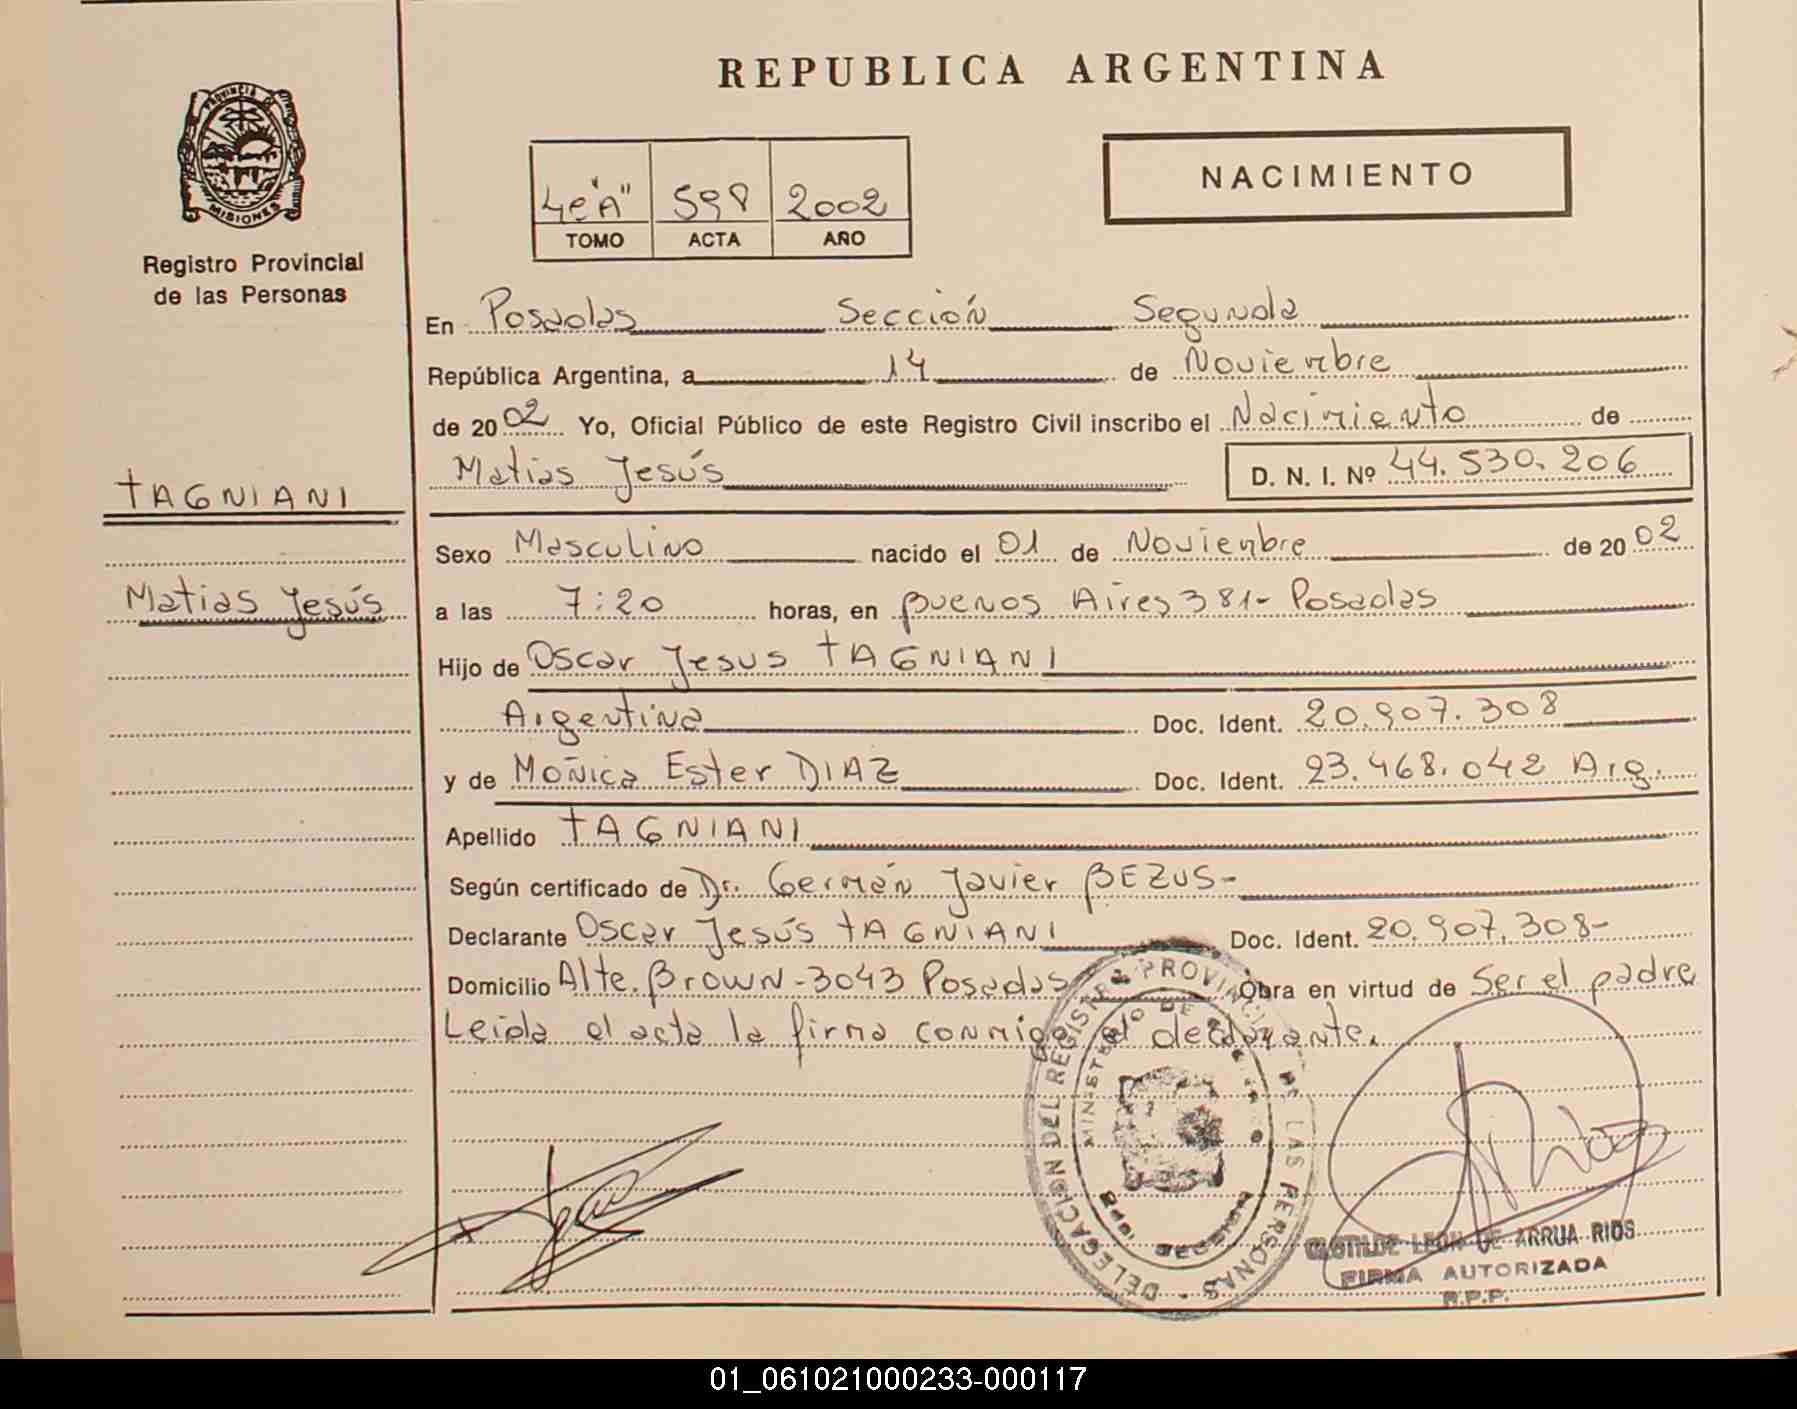 REPUBLICA ARGENTINA
PROVINCIA DE
MISIONES
Registro Provincial
de las Personas
4º "A" 598 2002
TOMO ACTA AÑO
NACIMIENTO
En Posadas Sección Segunda
República Argentina, a 14 de Noviembre
de 2002 Yo, Oficial Público de este Registro Civil inscribo el Nacimiento de
Matias Jesús D. N. I. Nº 44.530.206
TAGNIANI
Matias Jesús
Sexo Masculino nacido el 01 de Noviembre de 2002
a las 7:20 horas, en Buenos Aires 381- Posadas
Hijo de Oscar Jesus TAGNIANI
Argentina Doc. Ident. 20.907.308
y de Moñica Ester DIAZ Doc. Ident. 23.468.042 Arg.
Apellido TAGNIANI
Según certificado de Dr. Germán Javier BEZUS-
Declarante Oscar Jesús TAGNIANI Doc. Ident. 20.907.308-
Domicilio Alte. Brown - 3043 Posadas Obra en virtud de Ser el padre
Leida el acta la firma conmigo el declarante.
DELEGACION DEL REGISTRO PROVINCIAL DE LAS PERSONAS
MINISTERIO DE
CLOTILDE LEON DE ARRUA RIOS
FIRMA AUTORIZADA
R.P.P.
01_061021000233-000117